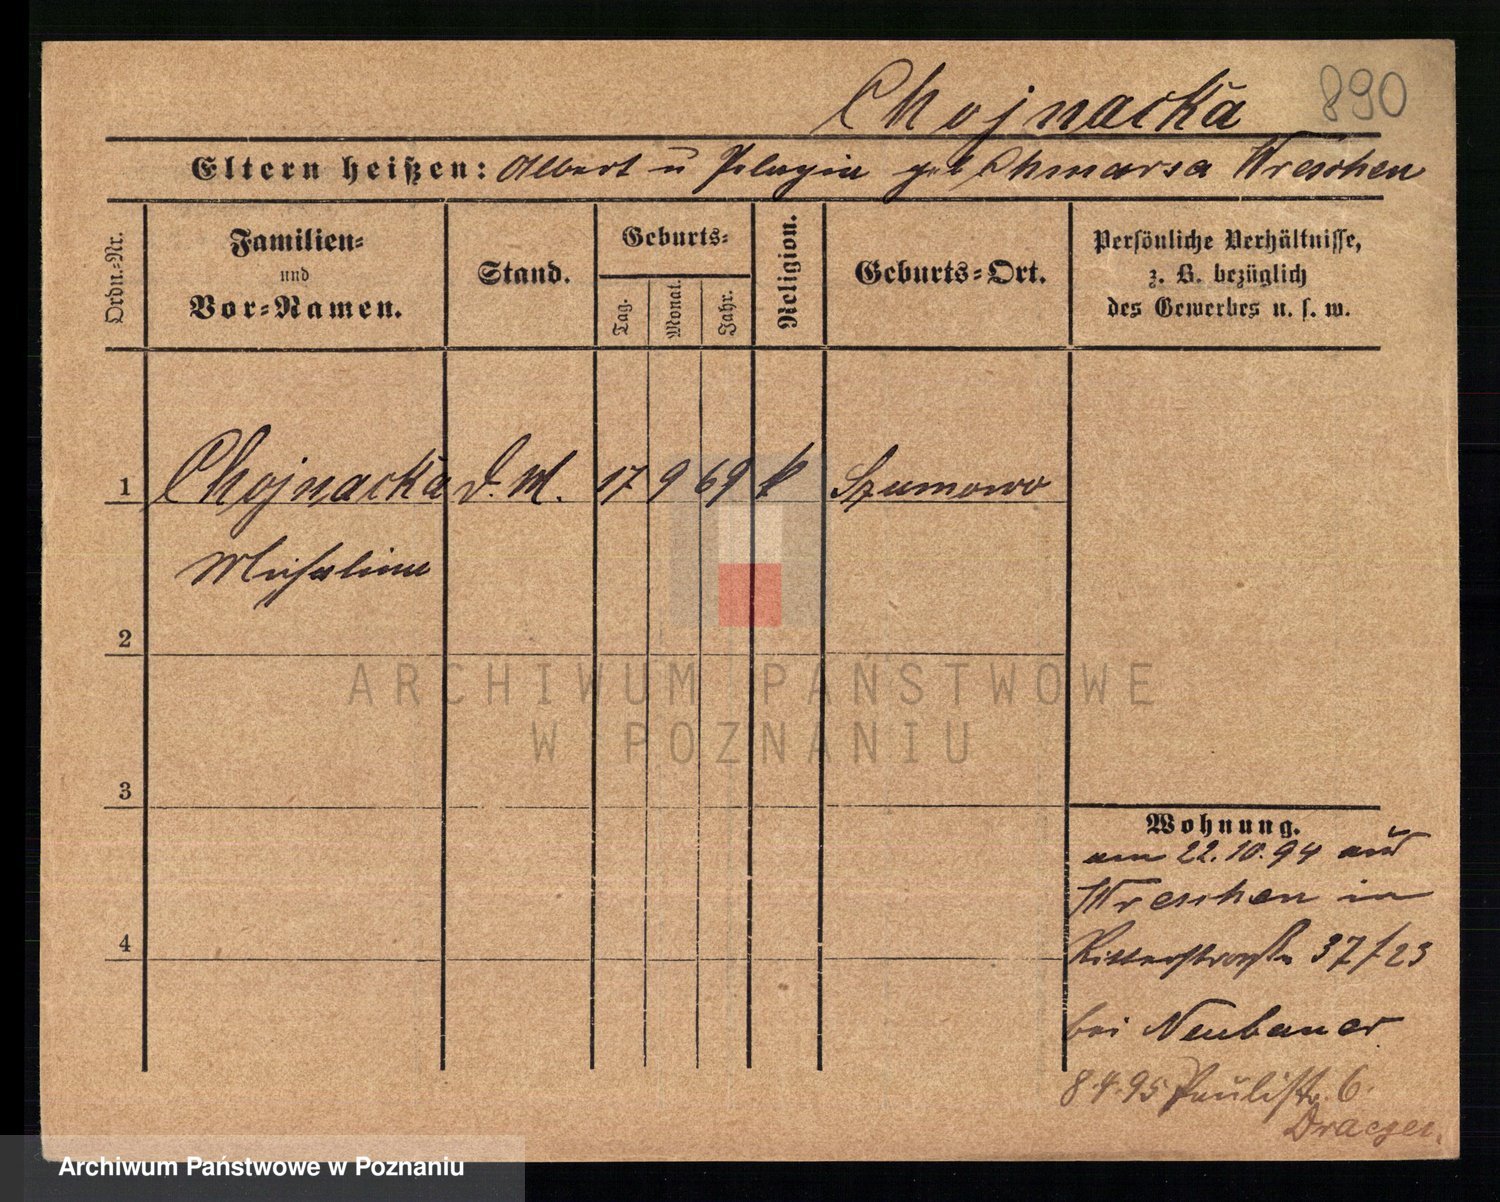 Chojnacka 890
Eltern heißen: Albert u Pelagia geb Chmarsa Wreschen
Ordn.-Nr.
Familien-
und
Vor-Namen.
Stand.
Geburts-
Tag.
Monat.
Jahr.
Religion.
Geburts-Ort.
Persönliche Verhältnisse,
z. B. bezüglich
des Gewerbes u. s. w.
1 Chojnacka d. M. 17 9 69 k Szumowo
Michalina
2
ARCHIWUM PAŃSTWOWE
W POZNANIU
3
Wohnung.
am 22.10.94 aus
Wreschen in
4
Ritterstraße 37/23
bei Neubauer
8.4.95 Paulistr. 6.
Draeger.
Archiwum Państwowe w Poznaniu